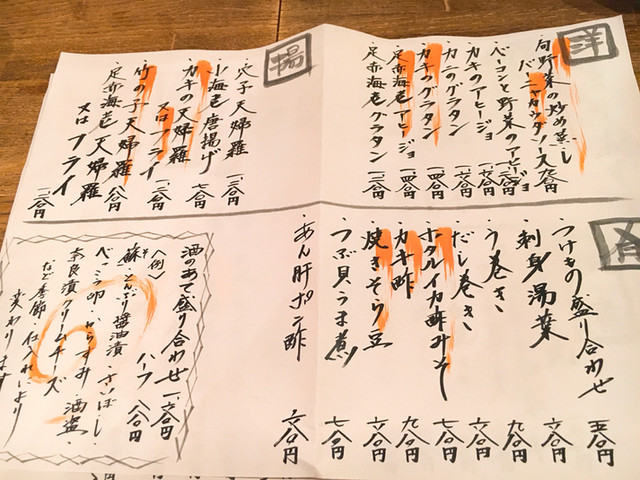 洋
・旬野菜の炒め蒸し
バーニャカウダソース 九〇〇円
・ベーコンと野菜のアヒージョ
・カキのアヒージョ
・カニのグラタン
・カキのグラタン 一、四〇〇円
・足赤海老アヒージョ 一、四〇〇円
・足赤海老グラタン
揚
・穴子天婦羅
・小海老唐揚げ 七〇〇円
・カキの天婦羅
又はフライ
・竹の子天婦羅 八〇〇円
・足赤海老天婦羅
又はフライ
・つけもの盛り合わせ 五〇〇円
・刺身湯葉 六〇〇円
・う巻き 九〇〇円
・だし巻き 六〇〇円
・ホタルイカ酢みそ 七〇〇円
・カキ酢 九〇〇円
・焼きそら豆 六〇〇円
・つぶ貝うま煮 七〇〇円
・あん肝ポン酢 六〇〇円
酒のあて盛り合わせ 一、六〇〇円
ハーフ 八〇〇円
(例)
蘇・とんぶり醤油漬・さいぼし
べっこう卵・からすみ・酒盗
奈良漬クリームチーズ
など季節・仕入れにより
変わります